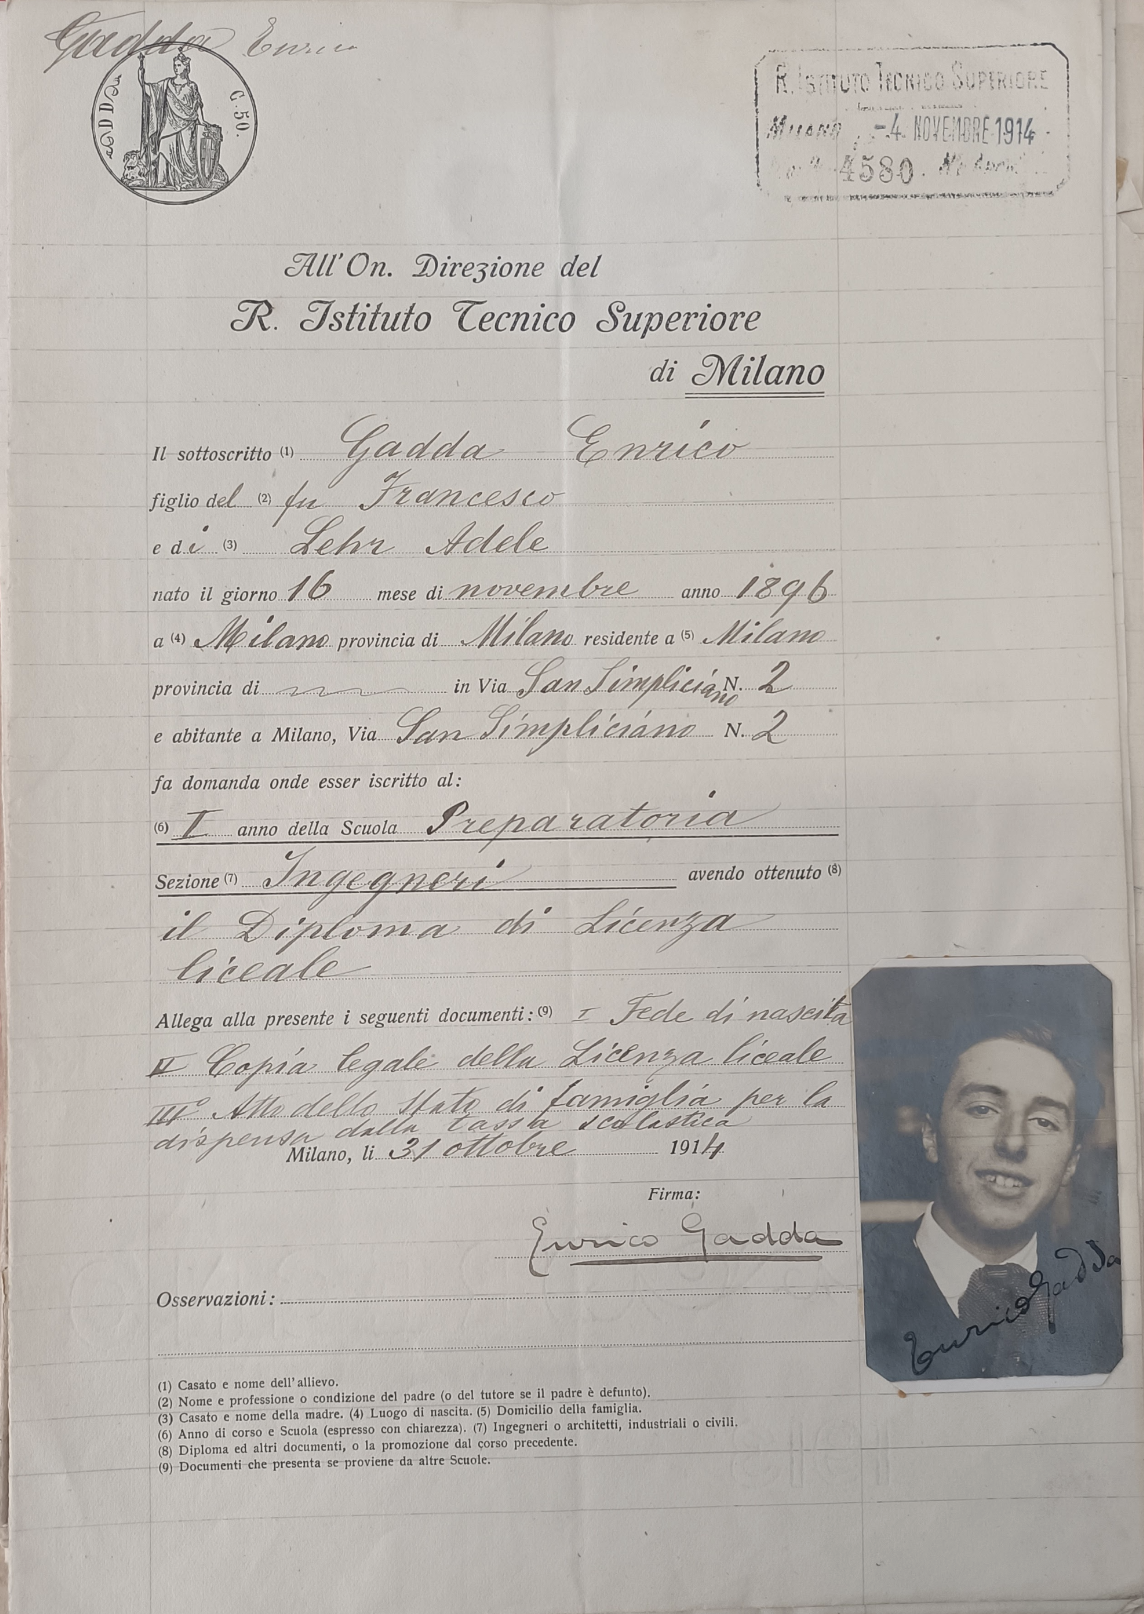 Gadda Enrico
C. 50.
R. ISTITUTO TECNICO SUPERIORE
MILANO -4. NOVEMBRE 1914
4580.
All'On. Direzione del
R. Istituto Tecnico Superiore
di Milano
Il sottoscritto (1) Gadda Enrico
figlio del (2) fu Francesco
e di (3) Lehr Adele
nato il giorno 16 mese di novembre anno 1896
a (4) Milano provincia di Milano residente a (5) Milano
provincia di in Via San Simpliciano N. 2
e abitante a Milano, Via San Simpliciano N. 2
fa domanda onde esser iscritto al:
(6) I anno della Scuola Preparatoria
Sezione (7) Ingegneri avendo ottenuto (8)
il Diploma di Licenza
liceale
Allega alla presente i seguenti documenti: (9) I Fede di nascita
II Copia legale della Licenza liceale
III° Atto dello Stato di famiglia per la
dispensa dalla tassa scolastica
Milano, li 31 ottobre 1914
Firma:
Enrico Gadda
Enrico Gadda
Osservazioni:
(1) Casato e nome dell'allievo.
(2) Nome e professione o condizione del padre (o del tutore se il padre è defunto).
(3) Casato e nome della madre. (4) Luogo di nascita. (5) Domicilio della famiglia.
(6) Anno di corso e Scuola (espresso con chiarezza). (7) Ingegneri o architetti, industriali o civili.
(8) Diploma ed altri documenti, o la promozione dal corso precedente.
(9) Documenti che presenta se proviene da altre Scuole.